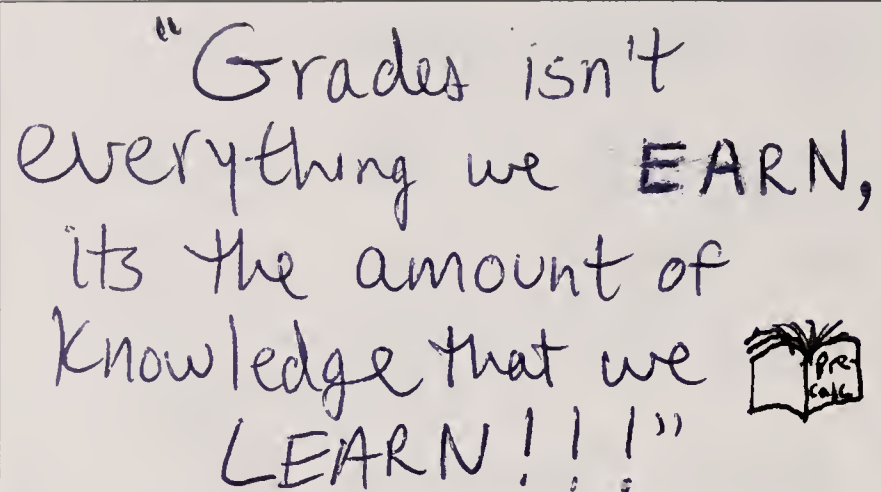 "Grades isn't
everything we EARN,
its the amount of
knowledge that we
LEARN!!!"
pre-
calc